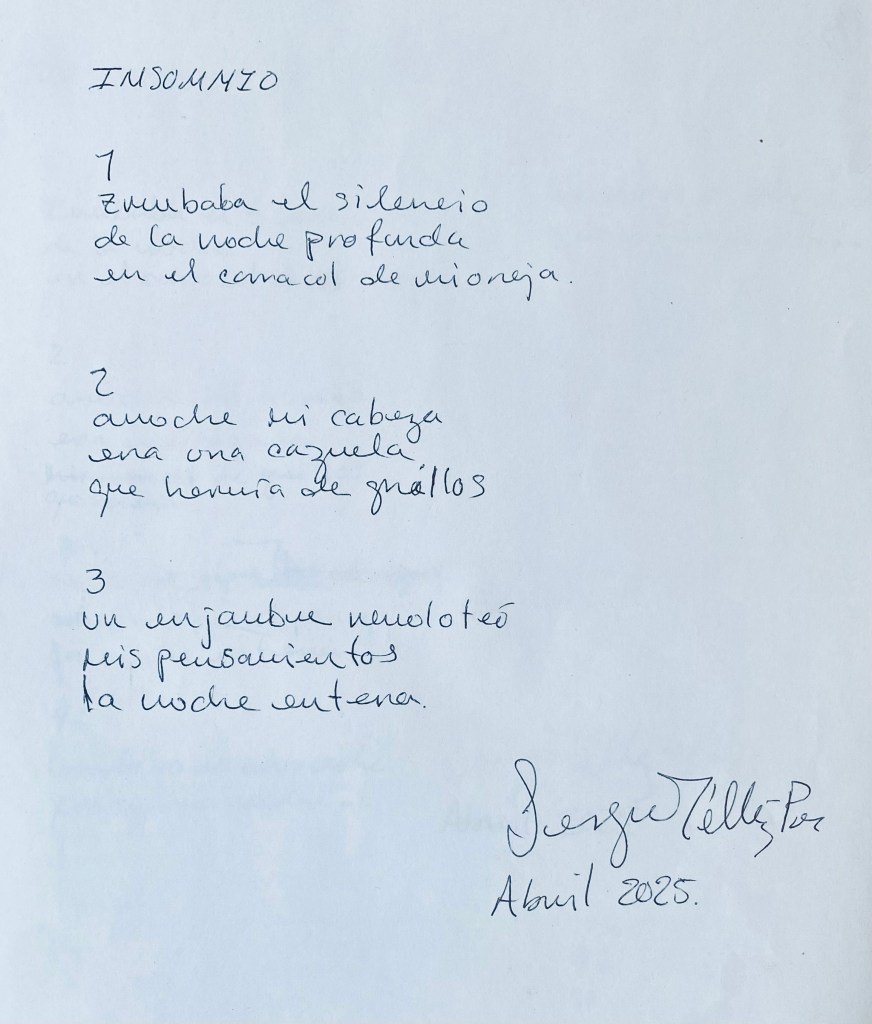 INSOMNIO
1
Zumbaba el silencio
de la noche profunda
en el caracol de mi oreja.
2
anoche mi cabeza
era una cazuela
que hervía de grillos
3
un enjambre revoloteó
mis pensamientos
la noche entera.
Sergio Téllez-Pon
Abril 2025.